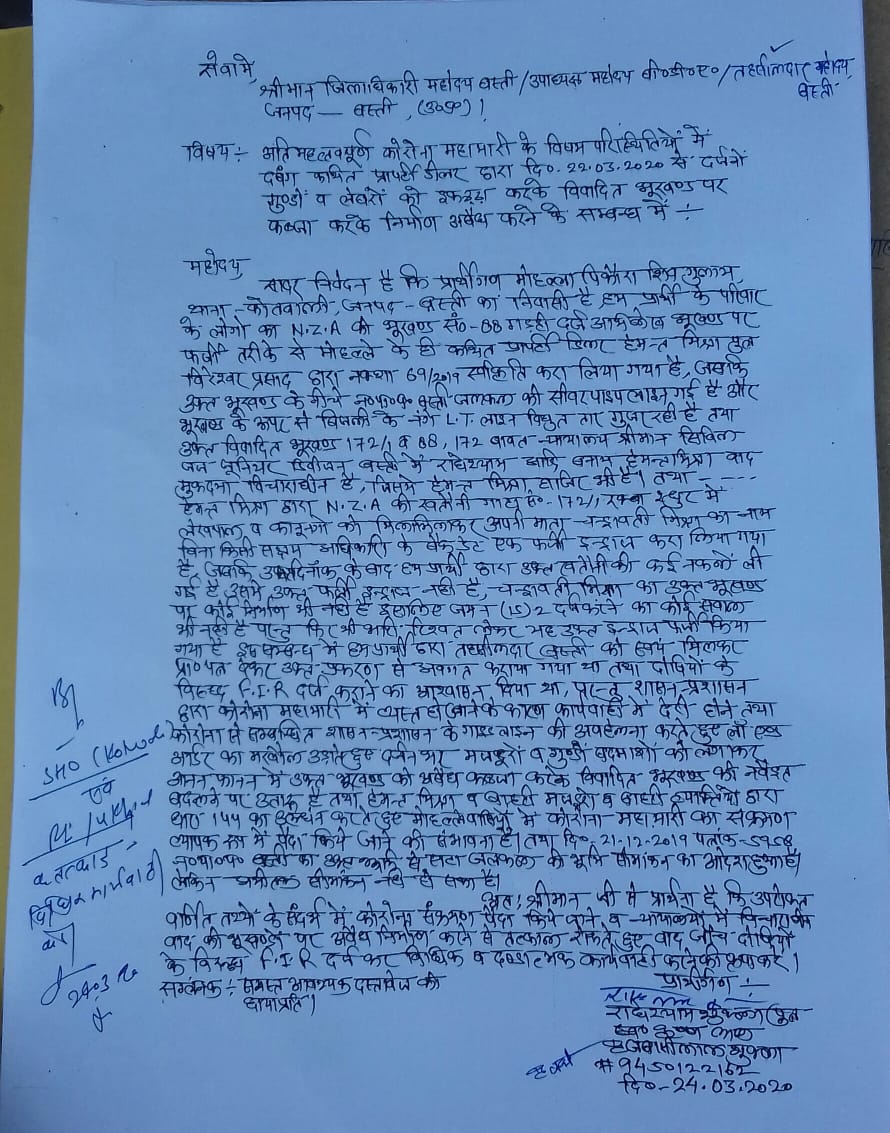 सेवामें,
श्रीमान जिलाधिकारी महोदय बस्ती/उपाध्यक्ष महोदय बी०डी०ए०/तहसीलदार महोदय बस्ती
जनपद — बस्ती, (उ०प्र०)।
विषय:- अतिमहत्वपूर्ण कोरोना महामारी के विषम परिस्थितियों में
दबंग कथित प्रापर्टी डीलर द्वारा दि०. 22.03.2020 से दर्जनों
गुण्डों व लेबरों को इकट्ठा करके विवादित भूखण्ड पर
कब्जा करके निर्माण अवैध करने के सम्बन्ध में :-
महोदय,
सादर निवेदन है कि प्रार्थीगण मोहल्ला पिकौरा शिवगुलाम,
थाना-कोतवाली, जनपद-बस्ती का निवासी है, हम प्रार्थी के परिवार
के लोगों का N.Z.A की भूखण्ड सं०-88 गड़ही दर्ज अभिलेख भूखण्ड पर
फर्जी तरीके से मोहल्ले के ही कथित प्रापर्टी डिलर हेमन्त मिश्रा पुत्र
विरेश्वर प्रसाद द्वारा नक्शा 69/2019 स्वीकृति करा लिया गया है, जबकि
उक्त भूखण्ड के नीचे न०पा०प० बस्ती जलकल की सीवर पाइप लाइन गई है और
भूखण्ड के ऊपर से बिजली के नंगे L.T. लाइन विधुत तार गुजर रही है तथा
उक्त विवादित भूखण्ड 172/1 व 88, 172 बावत न्यायालय श्रीमान सिविल
जज जूनियर डिवीजन बस्ती में राधेश्याम आदि बनाम हेमन्त मिश्रा वाद
मुकदमा विचाराधीन है, जिसमें हेमन्त मिश्रा हाजिर भी है। तथा - - - -
हेमन्त मिश्रा द्वारा N.Z.A की खतौनी गाटा सं०-172/1, रकबा में
लेखपाल व कानूनगो को मिलाकर अपनी माता चन्द्रावती मिश्रा का नाम
बिना किसी सक्षम अधिकारी के बैकडेट एक फर्जी इन्द्राज करा लिया गया
है, जबकि उक्त दिनॉक के बाद हम प्रार्थी द्वारा उक्त खतौनी की कई नकलें ली
गई है, उसमें उक्त फर्जी इन्द्राज नही है, चन्द्रावती मिश्रा का उक्त भूखण्ड
पर कोई निर्माण भी नही है इसलिए जमन (15)2 दर्ज करने का कोई सवाल
भी नही है परन्तु फिर भी रिश्वत लेकर यह उक्त इन्द्राज फर्जी किया
गया है इस सम्बन्ध में हम प्रार्थी द्वारा तहसीलदार बस्ती को स्वयं मिलकर
प्रा०पत्र देकर उक्त प्रकरण से अवगत कराया गया था तथा दोषियों के
विरुद्ध F.I.R दर्ज कराने का आश्वासन दिया था, परन्तु शासन-प्रशासन
द्वारा कोरोना महामारी में व्यस्त हो जाने के कारण कार्यवाही में देरी होने तथा
कोरोना से सम्बन्धित शासन-प्रशासन के गाइड लाइन की अवहेलना करते हुए लॉ एण्ड
आर्डर का मखौल उड़ाते हुए दर्जन भर मजदूरों व गुण्डों बदमाशों को लगाकर
आनन फानन में उक्त भूखण्ड को अवैध कब्जा करके विवादित भूखण्ड की नवैइत
बदलने पर उतारू है तथा हेमन्त मिश्रा व बाहरी मजदूरो व बाहरी व्यक्तियों द्वारा
धारा 144 का उल्लंघन करते हुए मोहल्लेवासियों में कोरोना महामारी का संक्रमण
व्यापक रूप में पैदा किये जाने की संभावना है। तथा दि०. 21.12.2019 पत्रांक-5958
न०पा०प० बस्ती का उक्त से सटा जलकल की भूमि सीमांकन का आदेश हुआ है।
लेकिन अभीतक सीमांकन नही हो सका है।
अतः श्रीमान जी से प्रार्थना है कि उपरोक्त
वर्णित तथ्यो के संदर्भ में कोरोना संक्रमण पैदा किये जाने व न्यायालयो में विचाराधीन
वाद की भूखण्डो पर अवैध निर्माण करने से तत्काल रोकते हुए बाद जाँच दोषियों
के विरुद्ध F.I.R दर्ज कर विधिक व दण्डात्मक कार्यवाही करने की कृपा करे।
संलग्नक:- समस्त आवश्यक दस्तावेज की
छायाप्रति।
प्रार्थीगण :-
राधेश्याम शुक्ला पुत्र
स्व० कृष्ण लाल
शुक्ला
# 9450122152
दि०-24.03.2020
SHO (Kotwali)
एवं
कृ तत्काल
विधिक कार्यवाही
करें
24.03.20